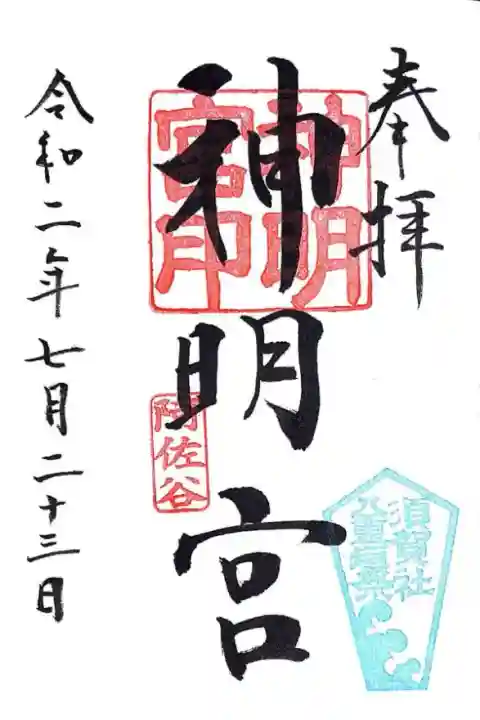 奉拝
神明宮
神明
宮印
阿佐谷
令和二年七月二十三日
須賀社
八重垣祭